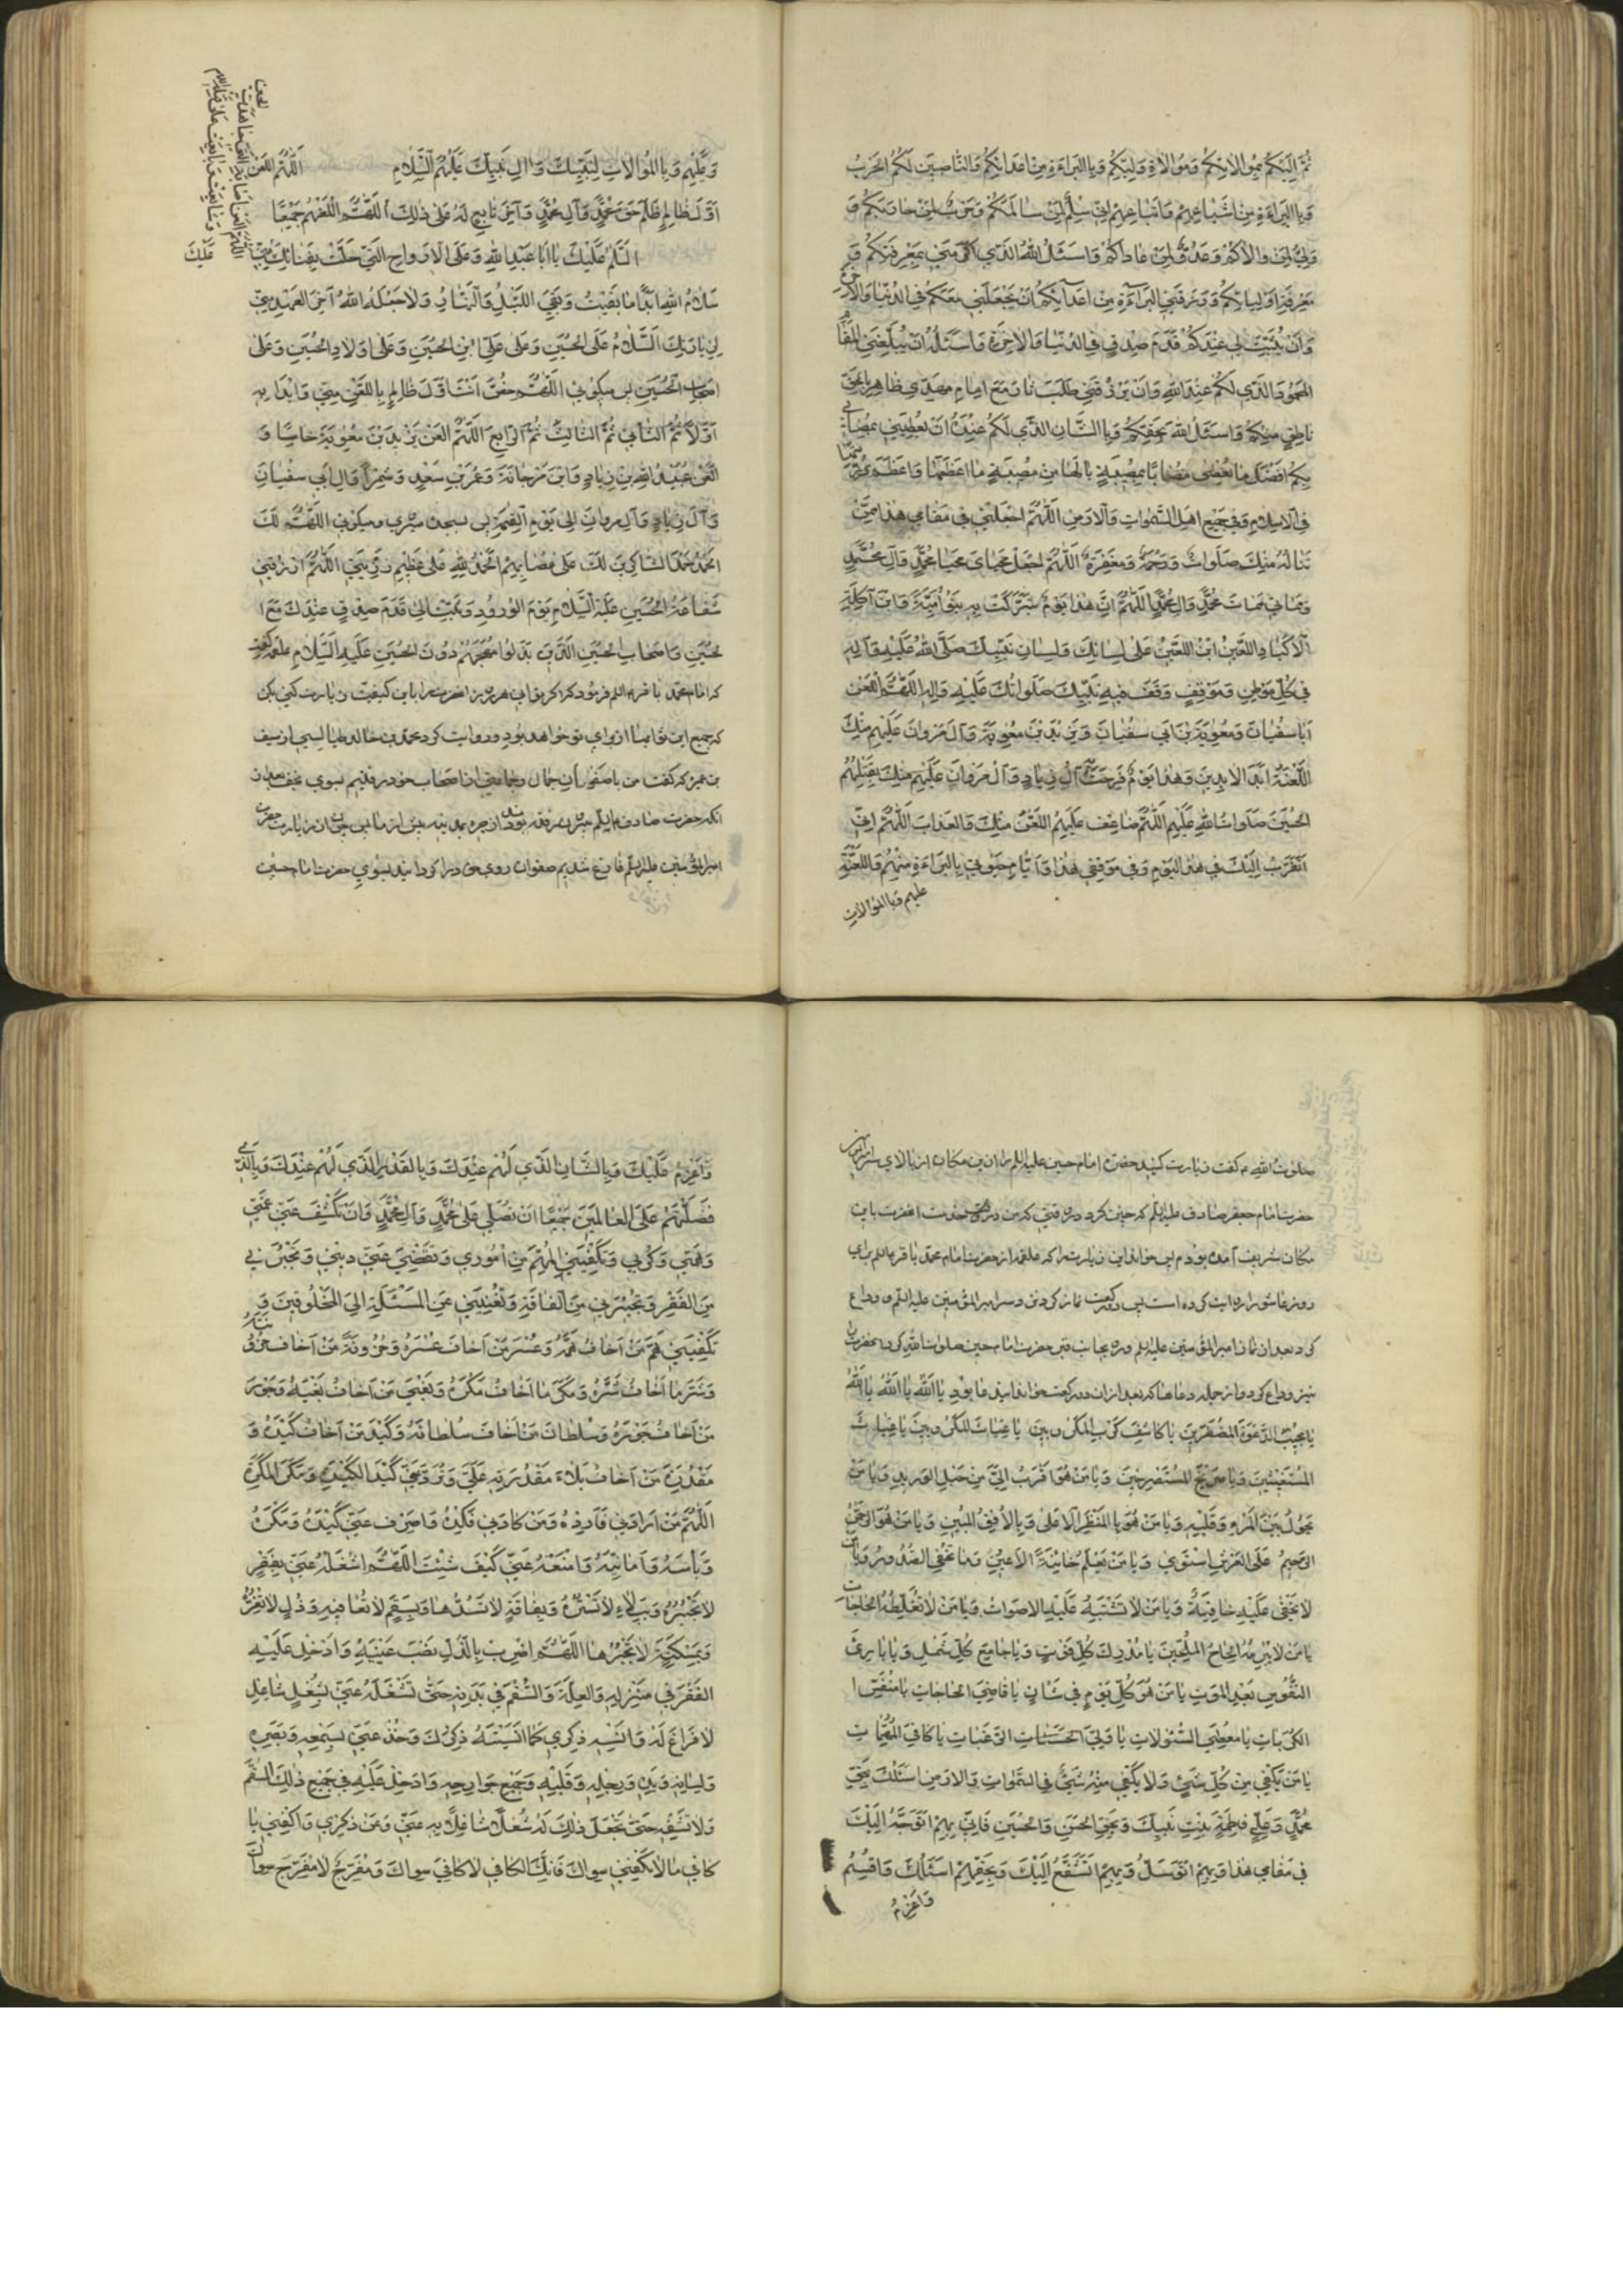 ثُمَّ اِلَيْكُمْ بِمُوالاتِكُمْ وَمُوَالاةِ وَلِيِّكُمْ وَبِالبَراءَةِ مِنْ اَعْدَائِكُمْ وَالنّاصِبِينَ لَكُمُ الحَرْبَ
وَبِالبَراءَةِ مِنْ اَشْيَاعِهِمْ وَاَتْبَاعِهِمْ اِنّى سِلْمٌ لِمَنْ سالَمَكُمْ وَحَرْبٌ لِمَنْ حارَبَكُمْ وَ
وَلِيٌّ لِمَنْ والاكُمْ وَعَدُوٌّ لِمَنْ عاداكُمْ فَاَسْئَلُ اللهَ الَّذي اَكْرَمَني بِمَعْرِفَتِكُمْ وَ
مَعْرِفَةِ اَوْلِيائِكُمْ وَرَزَقَنِي البَراءَةَ مِنْ اَعْدآئِكُمْ اَنْ يَجْعَلَنِي مَعَكُمْ فِي الدُّنْيا وَالاخِرَةِ
وَاَنْ يُثَبِّتَ لِي عِنْدَكُمْ قَدَمَ صِدْقٍ فِي الدُّنْيا وَالاخِرَةِ وَاَسْئَلُهُ اَنْ يُبَلِّغَنِي المَقامَ
المَحْمُودَ الَّذي لَكُمْ عِنْدَ اللهِ وَاَنْ يَرْزُقَنِي طَلَبَ ثارِكُمْ مَعَ اِمامٍ مَهْدِيٍّ ظاهِرٍ بِالحَقِّ
ناطِقٍ مِنْكُمْ وَاَسْئَلُ اللهَ بِحَقِّكُمْ وَبِالشَّانِ الَّذي لَكُمْ عِنْدَهُ اَنْ يُعْطِيَنِي بِمُصابِي
بِكُمْ اَفْضَلَ ما يُعْطِي مُصابًا بِمُصِيبَةٍ يا لَها مِنْ مُصِيبَةٍ ما اَعْظَمَها وَاَعْظَمَ رَزِيَّتَها
فِي الاِسْلامِ وَفِي جَمِيعِ اَهْلِ السَّمواتِ وَالاَرْضِ اَللّهُمَّ اجْعَلْنِي فِي مَقامِي هذا مِمَّنْ
تَنالُهُ مِنْكَ صَلَواتٌ وَرَحْمَةٌ وَمَغْفِرَةٌ اَللّهُمَّ اجْعَلْ مَحْيايَ مَحْيا مُحَمَّدٍ وَآلِ مُحَمَّدٍ
وَمَماتِي مَماتَ مُحَمَّدٍ وَآلِ مُحَمَّدٍ اَللّهُمَّ اِنَّ هذا يَوْمٌ تَبَرَّكَتْ بِهِ بَنُو اُمَيَّةَ وَابْنُ آكِلَةِ
الاَكْبادِ اللَّعِينُ ابْنُ اللَّعِينِ عَلى لِسانِكَ وَلِسانِ نَبِيِّكَ صَلَّى اللهُ عَلَيْهِ وَآلِهِ
فِي كُلِّ مَوْطِنٍ وَمَوْقِفٍ وَقَفَ فِيهِ نَبِيُّكَ صَلَواتُكَ عَلَيْهِ وَآلِهِ اَللّهُمَّ الْعَنْ
اَبا سُفْيانَ وَمُعوِيَةَ بْنَ اَبِي سُفْيانَ وَيَزِيدَ بْنَ مُعوِيَةَ وَآلَ مَرْوانَ عَلَيْهِمْ مِنْكَ
اللَّعْنَةُ اَبَدَ الابِدِينَ وَهذا يَوْمٌ فَرِحَتْ بِهِ آلُ زِيادٍ وَآلُ مَرْوانَ عَلَيْهِمْ مِنْكَ بِقَتْلِهِمُ
الحُسَيْنَ صَلَواتُ اللهِ عَلَيْهِمْ اَللّهُمَّ ضاعِفْ عَلَيْهِمُ اللَّعْنَ مِنْكَ وَالعَذابَ اَللّهُمَّ اِنّي
اَتَقَرَّبُ اِلَيْكَ فِي هذَا اليَوْمِ وَفِي مَوْقِفِي هذا وَاَيّامِ حَيوتِي بِالبَراءَةِ مِنْهُمْ وَاللَّعْنَةِ
عليهم وبالموالات
وَعَلَيْهِمْ وَبِالمُوالاتِ لِنَبِيِّكَ وَالِ نَبِيِّكَ عَلَيْهِمُ السَّلامِ اَللّهُمَّ الْعَنْ
اَوَّلَ ظالِمٍ ظَلَمَ حَقَّ مُحَمَّدٍ وَآلِ مُحَمَّدٍ وَآخِرَ تابِعٍ لَهُ عَلى ذلِكَ اَللّهُمَّ الْعَنْهُمْ جَمِيعًا
اَلسَّلامُ عَلَيْكَ يا اَبا عَبْدِ اللهِ وَعَلَى الاَرْواحِ الَّتِي حَلَّتْ بِفِنائِكَ عَلَيْكَ مِنّي
سَلامُ اللهِ اَبَدًا ما بَقِيتُ وَبَقِيَ اللَّيْلُ وَالنَّهارُ وَلا جَعَلَهُ اللهُ آخِرَ العَهْدِ مِنّي
لِزِيارَتِكَ اَلسَّلامُ عَلَى الحُسَيْنِ وَعَلى عَلِيِّ ابْنِ الحُسَيْنِ وَعَلى اَوْلادِ الحُسَيْنِ وَعَلى
اَصْحابِ الحُسَيْنِ پس میکوئی اَللّهُمَّ خُصَّ اَنْتَ اَوَّلَ ظالِمٍ بِاللَّعْنِ مِنّي وَابْدَا بِهِ
اَوَّلاً ثُمَّ الثّانِي ثُمَّ الثّالِثَ ثُمَّ الرّابِعَ اَللّهُمَّ الْعَنْ يَزِيدَ بْنَ مُعوِيَةَ خامِسًا وَ
الْعَنْ عُبَيْدَ اللهِ بْنَ زِيادٍ وَابْنَ مَرْجانَةَ وَعُمَرَ بْنَ سَعْدٍ وَشِمْرًا وَآلَ اَبِي سُفْيانَ
وَآلَ زِيادٍ وَآلَ مروانَ اِلى يَوْمِ القِيمَةِ پس بسجده میروی ومیکوئی اَللّهُمَّ لَكَ
الحَمْدُ حَمْدَ الشّاكِرِينَ لَكَ عَلى مُصابِهِمْ اَلْحَمْدُ لِلّهِ عَلى عَظِيمِ رَزِيَّتِي اَللّهُمَّ ارْزُقْنِي
شَفاعَةَ الحُسَيْنِ عَلَيْهِ السَّلامِ يَوْمَ الوُرُودِ وَثَبِّتْ لِي قَدَمَ صِدْقٍ عِنْدَكَ مَعَ ا
لحُسَيْنِ وَاَصْحابِ الحُسَيْنِ الَّذِينَ بَذَلُوا مُهَجَهُمْ دُونَ الحُسَيْنِ عَلَيْهِ السَّلامِ علقمه گفت
که امام محمد باقر م فرمود که اکر توانی هر روز انحضرت را باین کیفیت زیارت کنی بکن
که جمیع این ثوابها از برای تو خواهد بود وروایت کرد محمد بن خالد طیالسی از سیف
بن عمیره که کفت من با صفوان جمال وجماعتی از اصحاب خود رفتیم بسوی نجف بعد از
انکه حضرت صادف بیرون رفته بودند از حیره بمدینه پس از زیارت حضرت
امیرالمؤمنین علیه السلم فارغ شدیم صفوان روی خود را کردانید بسوی حضرت امام حسین
صلوت الله م کفت زیارت کنید حضرت امام حسین علیه السلم را از این مکان از بالای سر
حضرت امام جعفر صادف علیه السلم که چنین کرد در وقتی که من در خدمت انحضرت باین
مکان شریف آمده بودم پس خواند این زیارت را که علقمه از حضرت امام محمد باقر برای
روز عاشورا روایت کرده است پس دو رکعت نماز کرد نزد سر امیر المؤمنین علیه السلم و وداع
کرد بعد از نماز امیر المؤمنین علیه السلم ورو بجانب قبر حضرت امام حسین صلوت الله کرد
نیز وداع کرد واز جمله دعاها که بعد از ان دو رکعت خواند این دعا بود يا اَللهُ يا اَللهُ يا اَللهُ
يا مُجِيبَ الدَّعْوَةِ المُضْطَرِّينَ يا كاشِفَ كُرَبِ المَكْرُوبِينَ يا غِياثَ المَكْرُوبِينَ يا غِياثَ
المُسْتَغِيثِينَ وَيا صَرِيخَ المُسْتَصْرِخِينَ وَيا مَنْ هُوَ اَقْرَبُ اِلَيَّ مِنْ حَبْلِ الوَرِيدِ وَيا مَنْ
يَحُولُ بَيْنَ المَرْءِ وَقَلْبِهِ وَيا مَنْ هُوَ بِالمَنْظَرِ الاَعْلى وَبِالاُفُقِ المُبِينِ وَيا مَنْ هُوَ الرَّحْمنُ
الرَّحِيمُ عَلَى العَرْشِ اسْتَوى وَيا مَنْ يَعْلَمُ خائِنَةَ الاَعْيُنِ وَما تُخْفِي الصُّدُورُ وَيا مَنْ
لا يَخْفى عَلَيْهِ خافِيَةٌ وَيا مَنْ لا تَشْتَبِهُ عَلَيْهِ الاَصْواتُ وَيا مَنْ لا تُغَلِّطُهُ الحاجاتُ
يا مَنْ لا يُبْرِمُهُ اِلحاحُ المُلِحِّينَ يا مُدْرِكَ كُلِّ فَوْتٍ وَيا جامِعَ كُلِّ شَمْلٍ وَيا بارِئَ
النُّفُوسِ بَعْدَ المَوْتِ يا مَنْ هُوَ كُلَّ يَوْمٍ فِي شَانٍ يا قاضِيَ الحاجاتِ يا مُنَفِّسَ ا
لكُرُباتِ يا مُعْطِيَ السُّؤُلاتِ يا وَلِيَّ الرَّغَباتِ يا كافِيَ المُهِمّاتِ
يا مَنْ يَكْفِي مِنْ كُلِّ شَيْءٍ وَلا يَكْفِي مِنْهُ شَيْءٌ فِي السَّمواتِ وَالاَرْضِ اَسْئَلُكَ بِحَقِّ
مُحَمَّدٍ وَعَلِيٍّ وَفاطِمَةَ بِنْتِ نَبِيِّكَ وَبِحَقِّ الحَسَنِ وَالحُسَيْنِ فَاِنّي بِهِمْ اَتَوَجَّهُ اِلَيْكَ
فِي مَقامِي هذا وَبِهِمْ اَتَوَسَّلُ وَبِهِمْ اَتَشَفَّعُ اِلَيْكَ وَبِحَقِّهِمْ اَسْئَلُكَ وَاُقْسِمُ
وَاَعْزِمُ
وَاَعْزِمُ عَلَيْكَ وَبِالشَّانِ الَّذي لَهُمْ عِنْدَكَ وَبِالقَدْرِ الَّذي لَهُمْ عِنْدَكَ وَبِالَّذي
فَضَّلْتَهُمْ عَلَى العالَمِينَ جَمِيعًا اَنْ تُصَلِّيَ عَلى مُحَمَّدٍ وَآلِ مُحَمَّدٍ وَاَنْ تَكْشِفَ عَنّي غَمّي
وَهَمّي وَكَرْبي وَتَكْفِيَنِي المُهِمَّ مِنْ اُمُورِي وَتَقْضِيَ عَنّي دَيْنِي وَتُجِيرَنِي
مِنَ الفَقْرِ وَتُجِيرَنِي مِنَ الفاقَةِ وَتُغْنِيَنِي عَنِ المَسْئَلَةِ اِلَى المَخْلُوقِينَ وَ
تَكْفِيَنِي هَمَّ مَنْ اَخافُ هَمَّهُ وَعُسْرَ مَنْ اَخافُ عُسْرَهُ وَحُزُونَةَ مَنْ اَخافُ حُزُونَتَهُ
وَشَرَّ ما اَخافُ شَرَّهُ وَمَكْرَ ما اَخافُ مَكْرَهُ وَبَغْيَ مَنْ اَخافُ بَغْيَهُ وَجَوْرَ
مَنْ اَخافُ جَوْرَهُ وَسُلْطانَ مَنْ اَخافُ سُلْطانَهُ وَكَيْدَ مَنْ اَخافُ كَيْدَهُ وَ
مَقْدُرَةَ مَنْ اَخافُ بَلاءَ مَقْدُرَتِهِ عَلَيَّ وَتَرُدَّ عَنّي كَيْدَ الكَيَدَةِ وَمَكْرَ المَكَرَةِ
اَللّهُمَّ مَنْ اَرادَنِي فَاَرِدْهُ وَمَنْ كادَنِي فَكِدْهُ وَاصْرِفْ عَنّي كَيْدَهُ وَمَكْرَهُ
وَبَاْسَهُ وَاَمانِيَّهُ وَامْنَعْهُ عَنّي كَيْفَ شِئْتَ اَللّهُمَّ اشْغَلْهُ عَنّي بِفَقْرٍ
لا تَجْبُرُهُ وَبِبَلاءٍ لا تَسْتُرُهُ وَبِفاقَةٍ لا تَسُدُّها وَبِسُقْمٍ لا تُعافِيهِ وَذُلٍّ لا تُعِزُّهُ
وَبِمَسْكَنَةٍ لا تَجْبُرُها اَللّهُمَّ اضْرِبْ بِالذُّلِّ نَصْبَ عَيْنَيْهِ وَاَدْخِلْ عَلَيْهِ
الفَقْرَ فِي مَنْزِلِهِ وَالعِلَّةَ وَالسُّقْمَ فِي بَدَنِهِ حَتّى تَشْغَلَهُ عَنّي بِشُغْلٍ شاغِلٍ
لا فَراغَ لَهُ وَاَنْسِهِ ذِكْرِي كَما اَنْسَيْتَهُ ذِكْرَكَ وَخُذْ عَنّي بِسَمْعِهِ وَبَصَرِهِ
وَلِسانِهِ وَيَدِهِ وَرِجْلِهِ وَقَلْبِهِ وَجَمِيعِ جَوارِحِهِ وَاَدْخِلْ عَلَيْهِ فِي جَمِيعِ ذلِكَ السُّقْمَ
وَلا تَشْفِهِ حَتّى تَجْعَلَ ذلِكَ لَهُ شُغْلاً شاغِلاً بِهِ عَنّي وَعَنْ ذِكْرِي وَاكْفِنِي يا
كافِيَ ما لا يَكْفِي سِواكَ فَاِنَّكَ الكافِي لا كافِيَ سِواكَ وَمُفَرِّجٌ لا مُفَرِّجَ سِواكَ